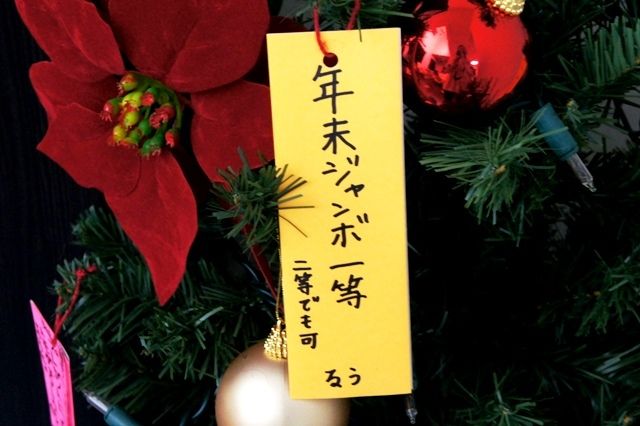 年末ジャンボ一等
二等でも可
るう